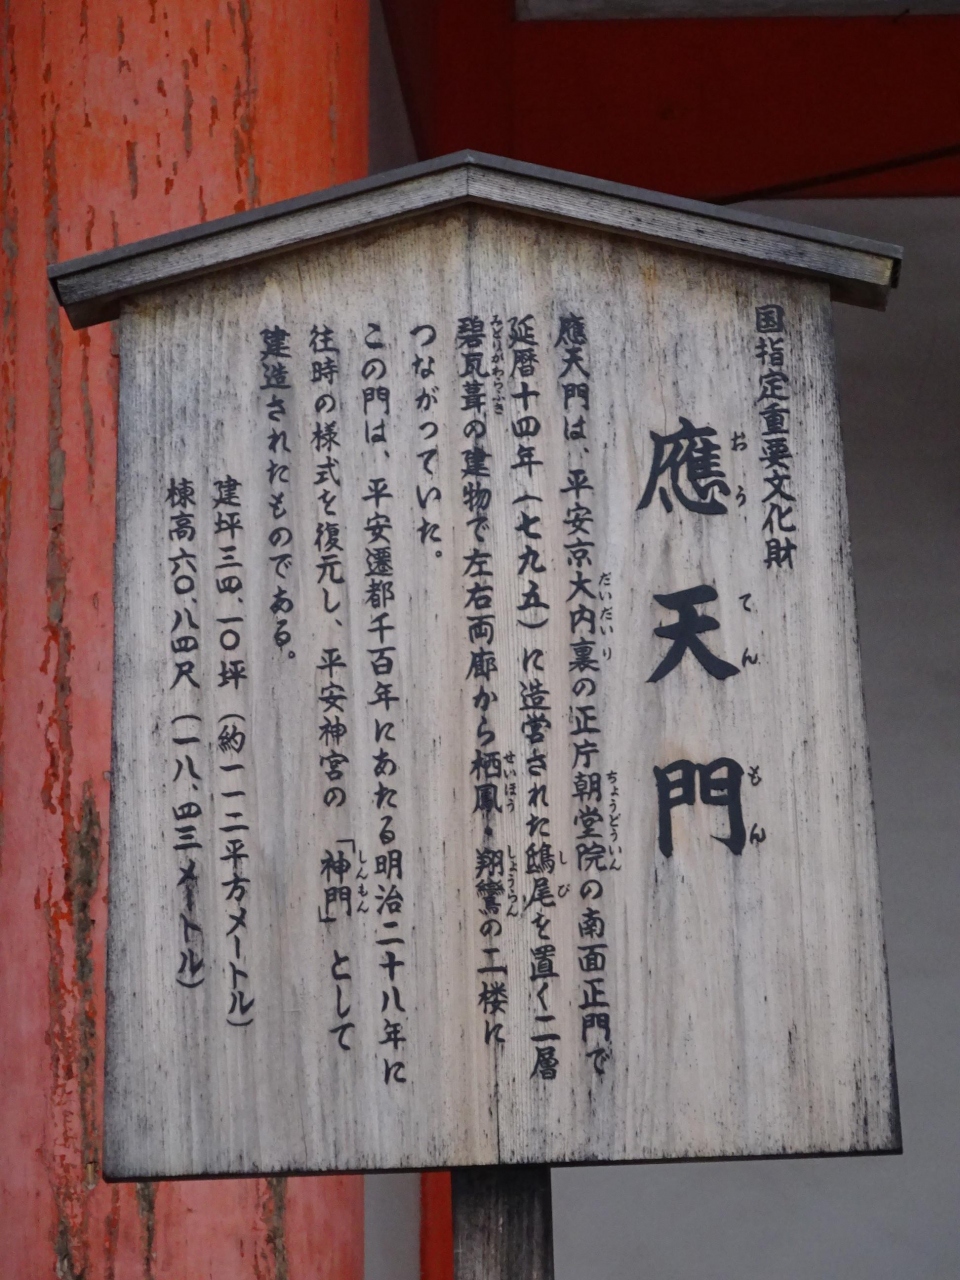 国指定重要文化財
應天門
おうてんもん
應天門は、平安京大内裏の正庁朝堂院の南面正門で
だいだいり
ちょうどういん
延暦十四年(七九五)に造営された鴟尾を置く二層
しび
碧瓦葺の建物で左右両廊から栖鳳・翔鸞の二楼に
みどりがわらぶき
せいほう
しょうらん
つながっていた。
この門は、平安遷都千百年にあたる明治二十八年に
往時の様式を復元し、平安神宮の「神門」として
しんもん
建造されたものである。
建坪三四、一〇坪(約一一二平方メートル)
棟高六〇、八四尺(一八、四三メートル)